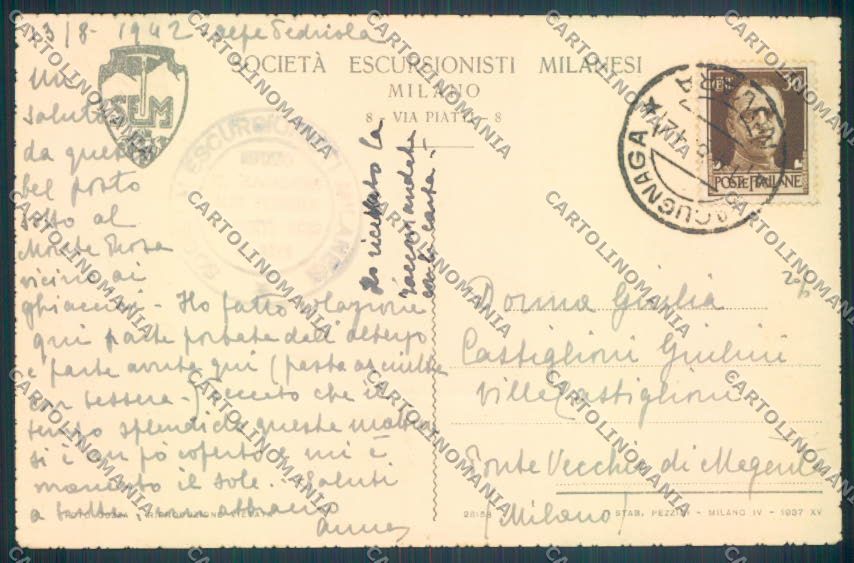 13/8 - 1942 Alpe Pedriola
SOCIETÀ ESCURSIONISTI MILANESI
MILANO
8 - VIA PIATTI - 8
SEM
Un
saluto
da questo
bel posto
sotto al
Monte Rosa
vicino ai
ghiacciai - Ho fatto colazione
qui parte portata dall'albergo
e parte avuta qui (pasta asciutta
con tessera -
tempo splendido questa mattina
si è un po' coperto e mi è
mancato il sole. Saluti
a tutti abbraccio
Anna
Ho ricevuto la
raccomandata
con la carta -
MACUGNAGA
POSTE ITALIANE
Donna Giulia
Castiglioni Giulini
Villa Castiglioni
Ponte Vecchio di Magenta
(Milano)
RIPRODUZIONE VIETATA
STAB. PEZZINI - MILANO IV - 1937 XV
CARTOLINOMANIA